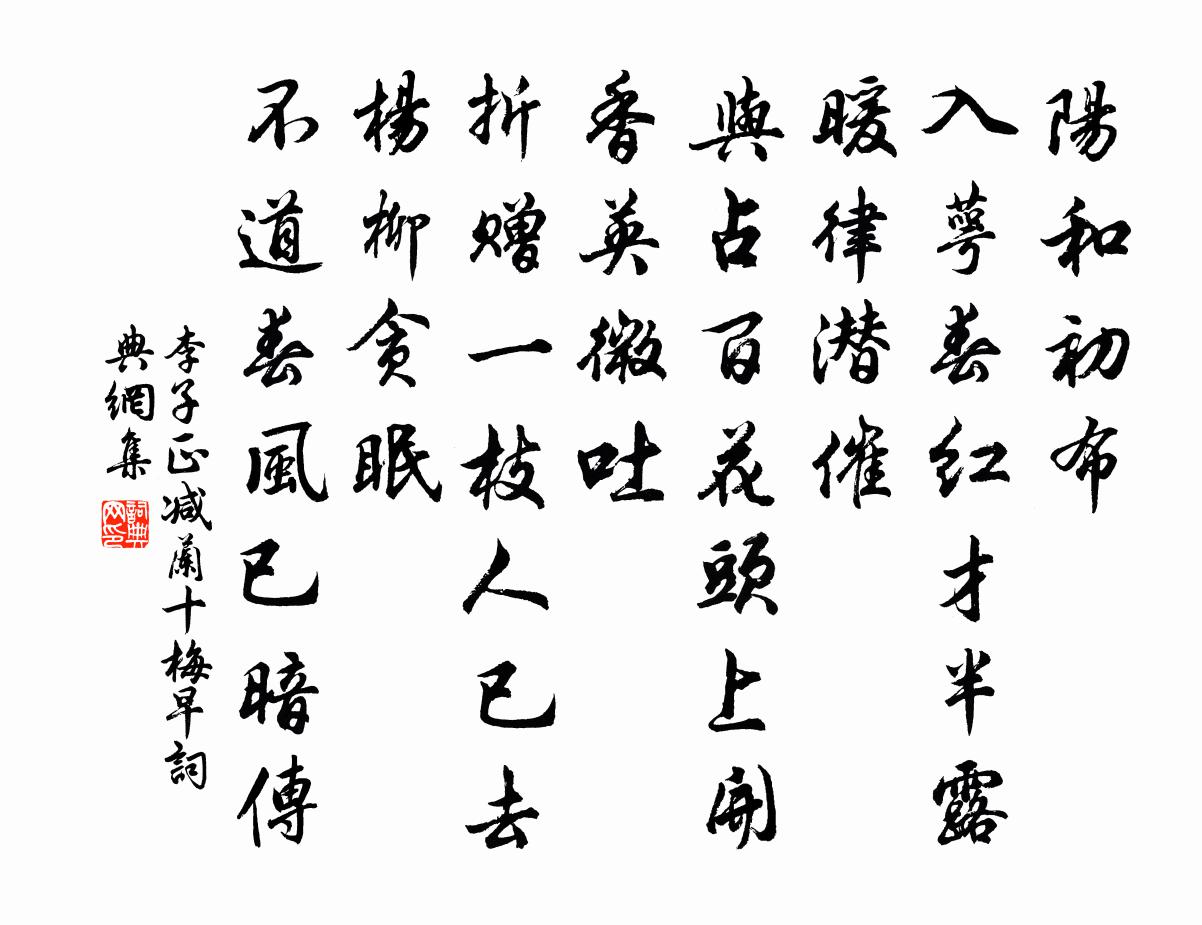 陽和初布
入萼春紅才半露
暖律潜催
與占百花頭上開
香英微吐
折贈一枝人已去
楊柳貪眠
不道春風已暗傳
李子正减蘭十梅早詞
典網集
詞典網印